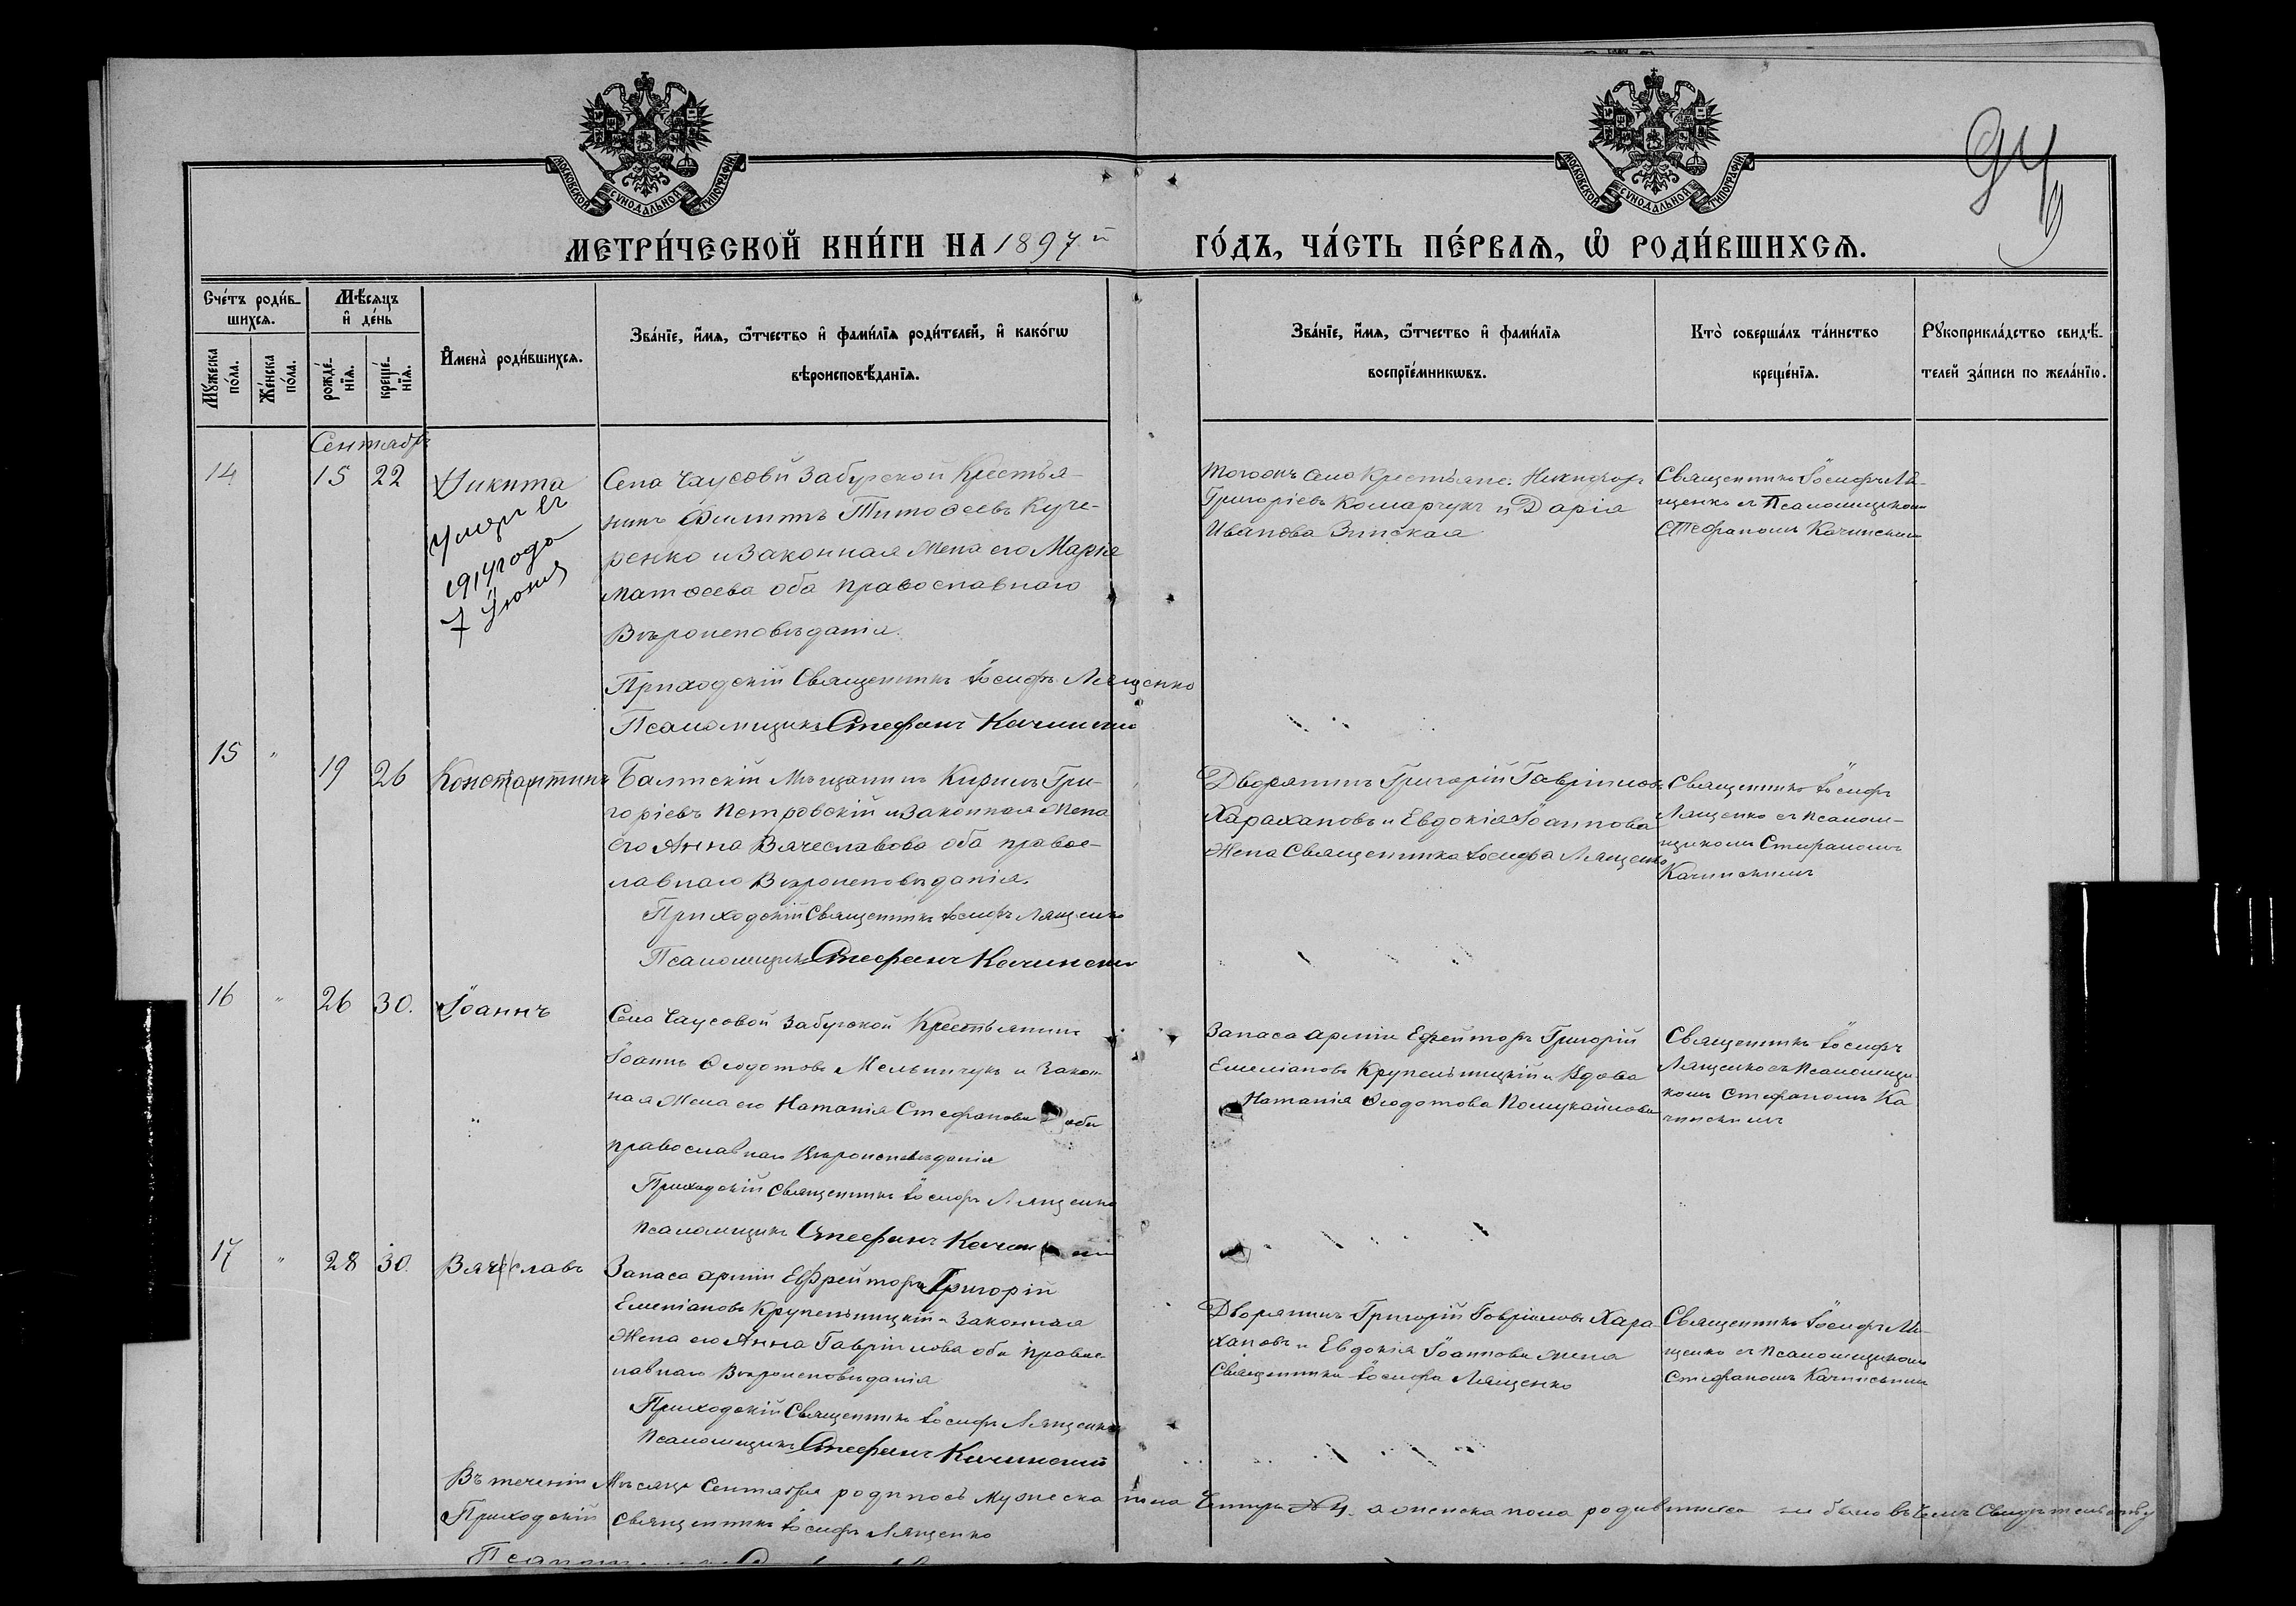 МОСКОВСКОЙ СѴНОДАЛЬНОЙ ТИПОГРАФІИ
МОСКОВСКОЙ СѴНОДАЛЬНОЙ ТИПОГРАФІИ
МЕТРИ́ЧЕСКОЙ КНИ́ГИ НА 1897 й
ГО́ДЪ, ЧА́СТЬ ПЕ́РВАѦ, Ѡ҆ РОДИ́ВШИХСѦ.
Сче́тъ роди́в-
шихсѧ.
Мѣ́сѧцъ
и҆ де́нь
Мꙋ́жеска
по́ла.
Же́нска
по́ла.
рожде́-
нїѧ.
креще́-
нїѧ.
И҆мена̀ роди́вшихсѧ.
Зва́нїе, и҆́мѧ, ѻ҆́тчество и҆ фами́лїѧ роди́телей, и҆ како́гѡ
вѣроисповѣ́данїѧ.
Зва́нїе, и҆́мѧ, ѻ҆́тчество и҆ фами́лїѧ
воспрїе́мникѡвъ.
Кто̀ соверша́лъ та́инство
креще́нїѧ.
Рꙋкоприкла́дство свидѣ́-
телей за́писи по жела́нїю.
Сентябрь
14 15 22 Никита
Умеръ
1914 года
7 Июня
Села Чаусовй Забугской Крестья-
нинъ Филиппъ Тимоѳеевъ Куче-
ренко и Законная Жена его Марія
Матѳеева оба православнаго
Вѣроисповѣданія.
Приходскій Священникъ Іосифъ Лященко
Псаломщикъ Стефанъ Качинскій
Тогожъ села Крестьяне: Никифоръ
Григоріевъ Комарчукъ и Дарія
Иванова Зинская
Священникъ Іосифъ Ля-
щенко съ Псаломщикомъ
Стефаномъ Качинскимъ
15 " 19 26 Константинъ
Балтскій Мѣщанинъ Кирилъ Гри-
горіевъ Петровскій и Законная Жена
его Анна Вячеславова оба правос-
лавнаго Вѣроисповѣданія.
Приходскій Священникъ Іосифъ Лященко
Псаломщикъ Стефанъ Качинскій
Дворянинъ Григорій Гавріиловъ
Харахановъ и Евдокія Іоаннова
Жена Священника Іосифа Лященко
Священникъ Іосифъ
Лященко съ Псалом-
щикомъ Стефаномъ
Качинскимъ
16 " 26 30. Іоаннъ
Села Чаусовой Забугской Крестьянинъ
Іоаннъ Ѳеодотовъ Мельничукъ и Закон-
ная Жена его Наталія Стефанова оба
православнаго Вѣроисповѣданія
Приходскій Священникъ Іосифъ Лященко
Псаломщикъ Стефанъ Качинскій
Запаса арміи Ефрейторъ Григорій
Емеліановъ Крупельницкій и Вдова
Наталія Ѳеодотова
Священникъ Іосифъ
Лященко съ Псаломщи-
комъ Стефаномъ Ка
чинскимъ
17 " 28 30. Вячеславъ
Запаса арміи Ефрейторъ Григорій
Емеліановъ Крупельницкій и Законная
Жена его Анна Гавріилова оба правос-
лавнаго Вѣроисповѣданія
Приходскій Священникъ Іосифъ Лященко
Псаломщикъ Стефанъ Качинскій
Дворянинъ Григорій Гавріиловъ Хара-
хановъ и Евдокія Іоаннова жена
Священника Іосифа Лященко
Священникъ Іосифъ Ля-
щенко съ Псаломщикомъ
Стефаномъ Качинскимъ
Въ теченіи Мѣсяца Сентября родилось Мужеска пола Четыре № 4. а женска пола родившихся не было въ чемъ Свидѣтельствую
Приходскій Священникъ Іосифъ Лященко